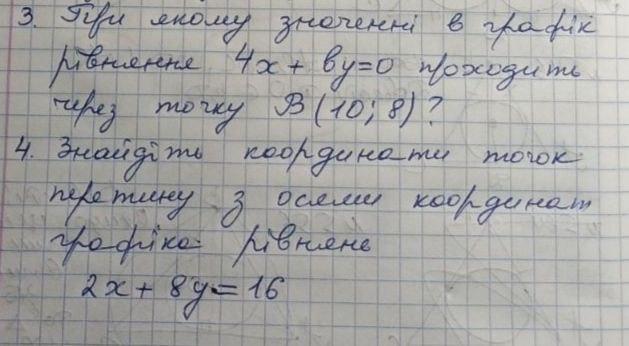 3. При якому значенні в графік
рівняння 4x + вy=0 проходить
через точку В (10; 8)?
4. Знайдіть координати точок
перетину з осями координат
графіка рівнянь
2x + 8y = 16